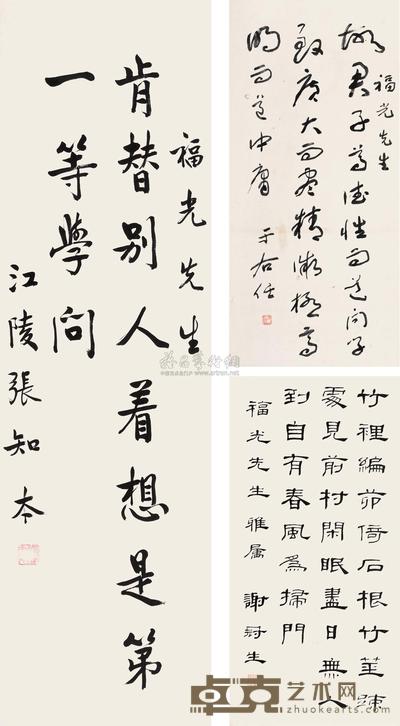 福光先生
肯替别人着想是第
一等學問
江陵張知本
福光先生
故君子尊德性而道問學
致廣大而盡精微極高
明而道中庸
于右任
竹裡編茆倚石根竹莖疎
處見前村閑眠盡日無人
到自有春風爲掃門
福光先生雅屬 謝冠生
卓克艺术网
www.zhuokearts.com